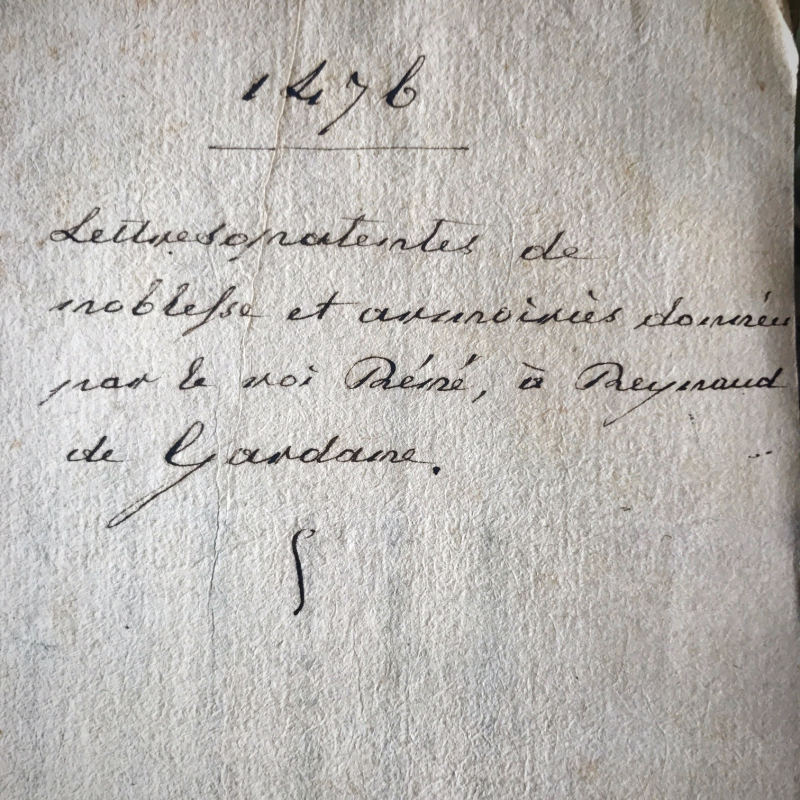 1476
Lettres patentes de
noblesse et armoiriès données
par le roi Réné, à Reynaud
de Gardane.